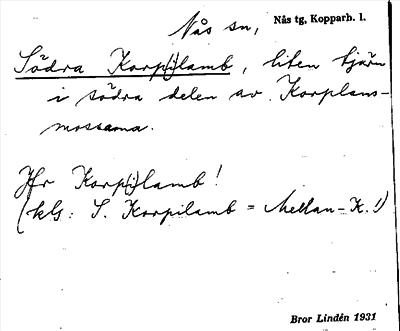 Nås sn, Nås tg, Kopparb. l.
Södra Korp(i)lamb, liten tjärn
i södra delen av Korplans-
mossarna.
Jfr Korp(i)lamb!
(kls: S. Korpilamb = Mellan-K.!)
Bror Lindén 1931